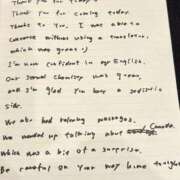 Thank you for today
Thank you for coming today.
Thanks to you, I was able to
converse without using a translator,
which was great :)
I'm not confident in our English.
Our second was great,
and I'm glad you have a
side.
We also had relaxing massages.
We ended up talking about Canada.
Which was a bit of a surprise.
Be careful on your way home tonight